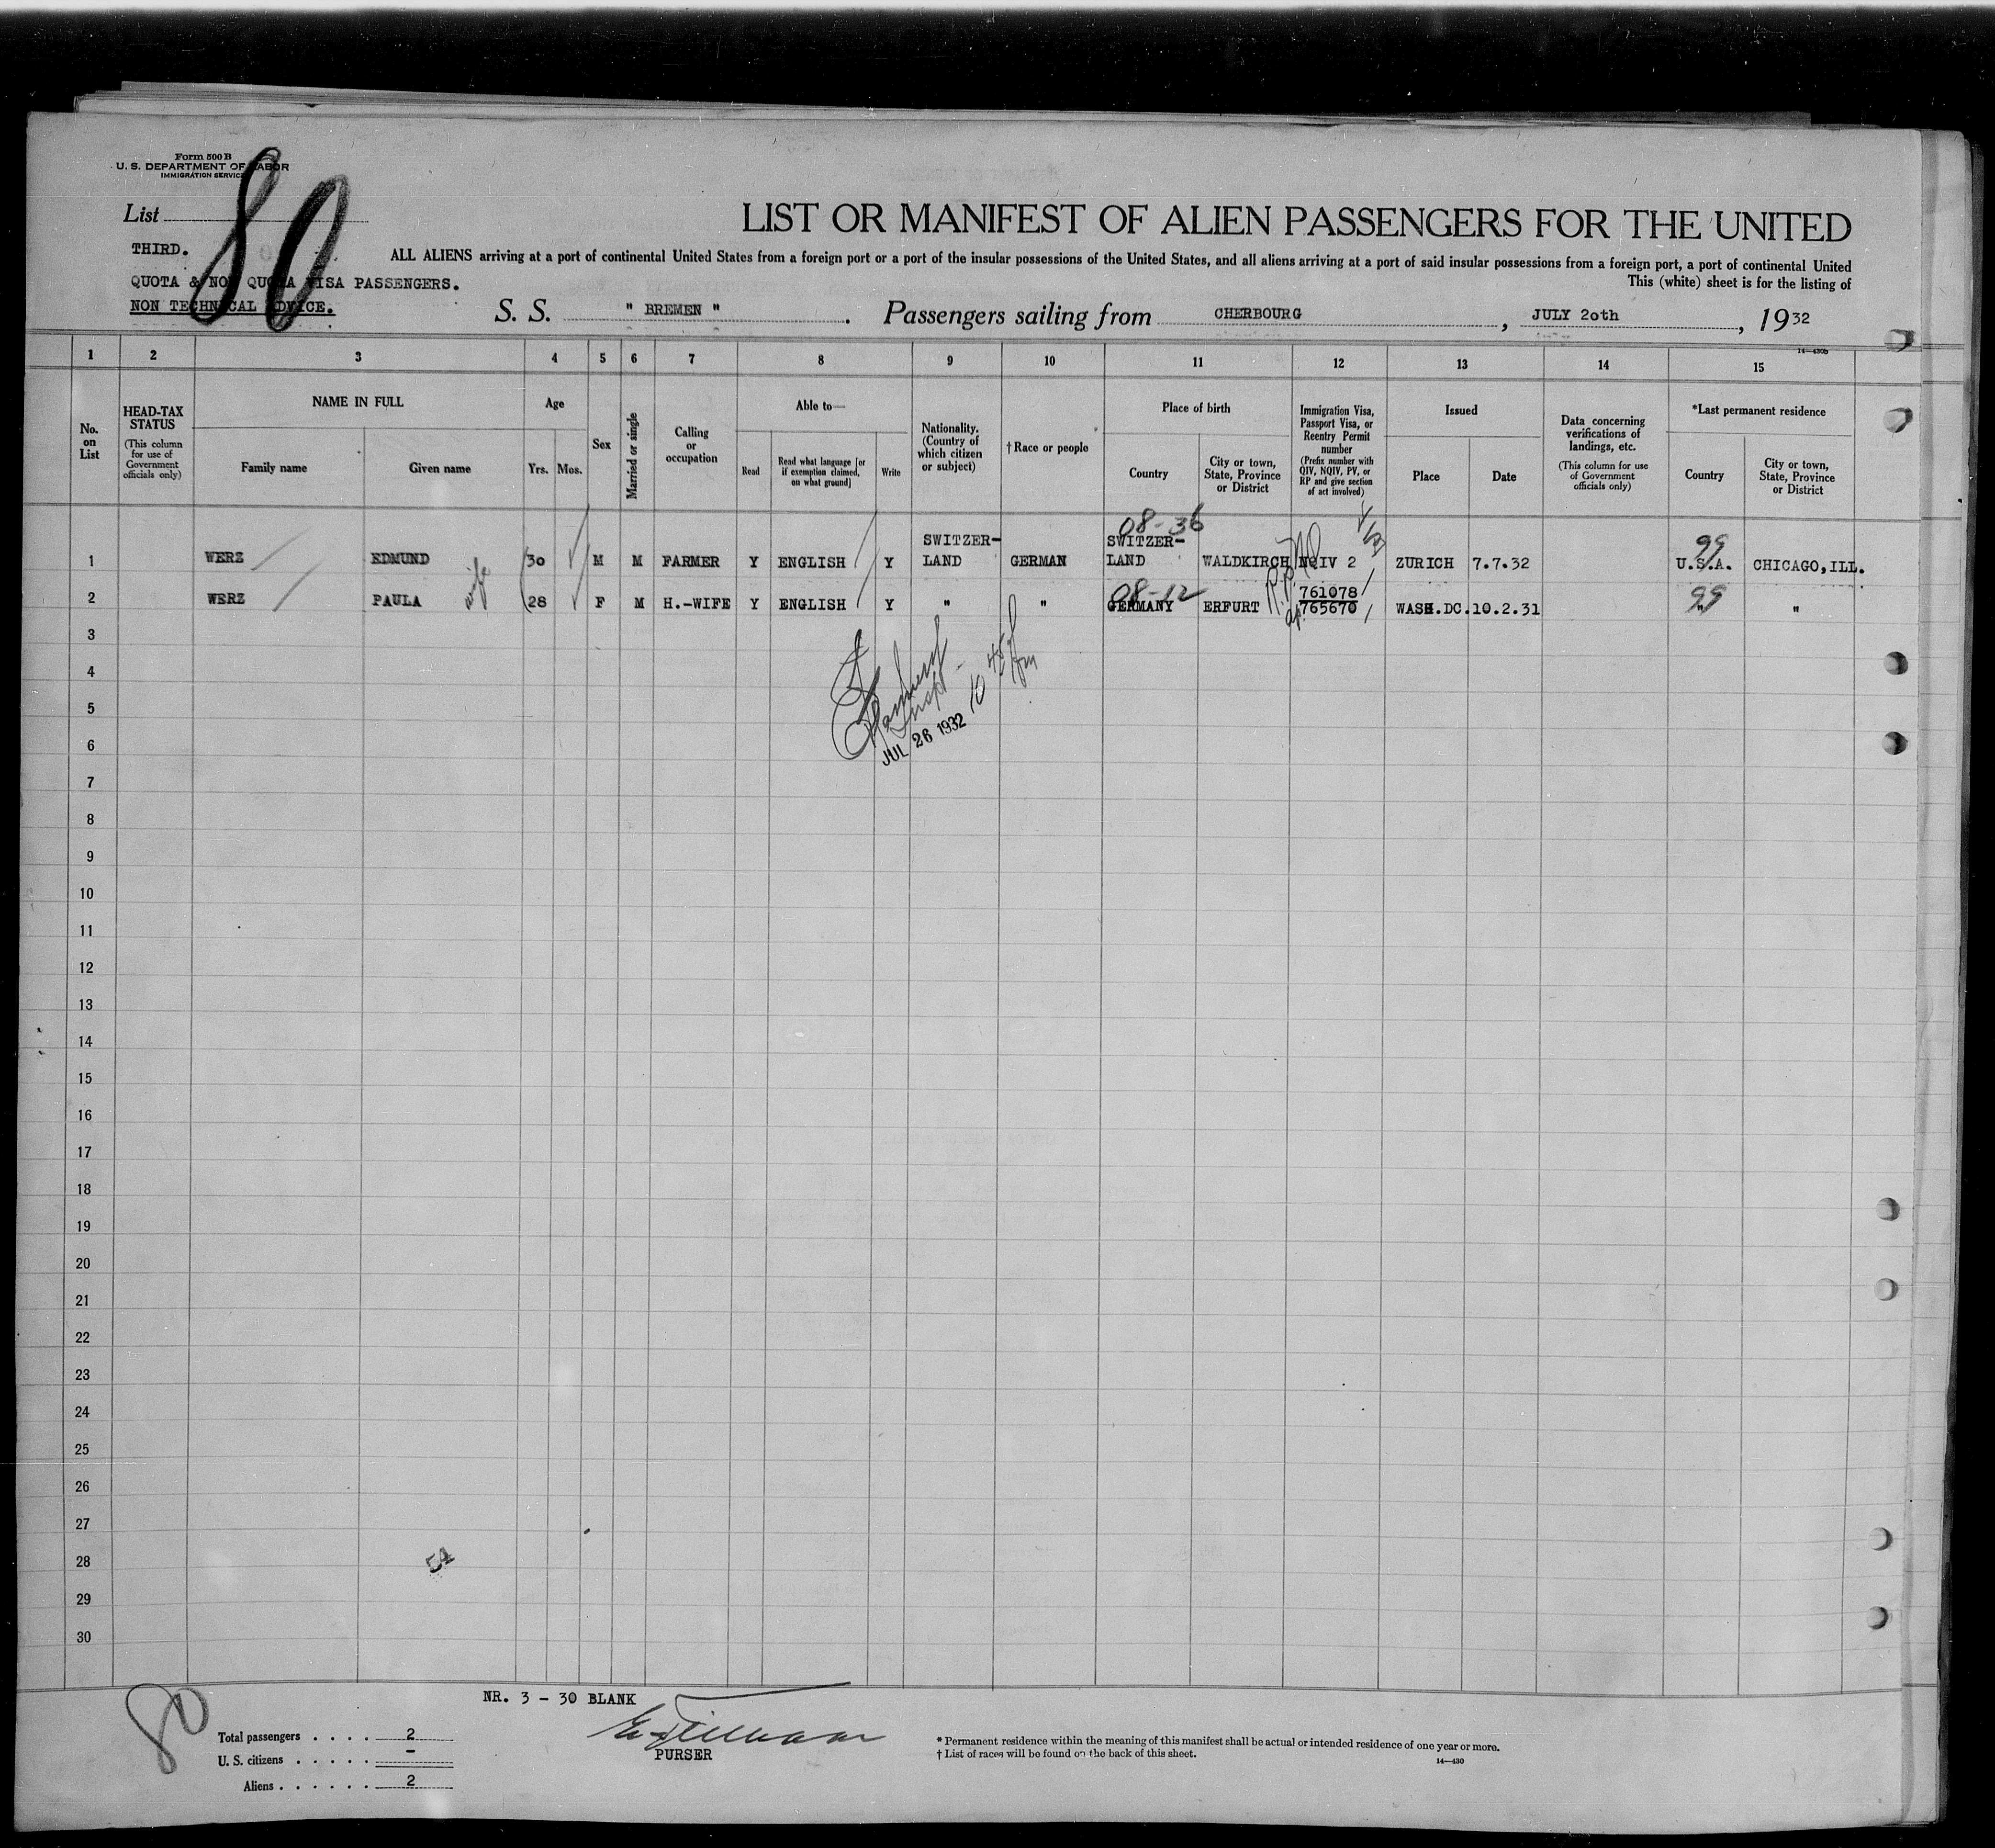 Form 500 B
U. S. DEPARTMENT OF LABOR
IMMIGRATION SERVICE
List 80
LIST OR MANIFEST OF ALIEN PASSENGERS FOR THE UNITED
THIRD.
ALL ALIENS arriving at a port of continental United States from a foreign port or a port of the insular possessions of the United States, and all aliens arriving at a port of said insular possessions from a foreign port, a port of continental United
QUOTA & NON QUOTA VISA PASSENGERS.
This (white) sheet is for the listing of
NON TECHNICAL ADVICE.
S. S. " BREMEN " . Passengers sailing from CHERBOURG , JULY 20th , 1932
14—430b
1 2 3 4 5 6 7 8 9 10 11 12 13 14 15
No. on List
HEAD-TAX STATUS
(This column for use of Government officials only)
NAME IN FULL
Family name
Given name
Age
Yrs. Mos.
Sex
Married or single
Calling or occupation
Able to—
Read
Read what language [or if exemption claimed, on what ground]
Write
Nationality. (Country of which citizen or subject)
† Race or people
Place of birth
Country
City or town, State, Province or District
Immigration Visa, Passport Visa, or Reentry Permit number
(Prefix number with QIV, NQIV, PV, or RP and give section of act involved)
Issued
Place
Date
Data concerning verifications of landings, etc.
(This column for use of Government officials only)
*Last permanent residence
Country
City or town, State, Province or District
08-36
99
1 WERZ EDMUND 30 M M FARMER Y ENGLISH Y SWITZER-LAND GERMAN SWITZER-LAND WALDKIRCH NQIV 2 ZURICH 7.7.32 U.S.A. CHICAGO,ILL.
08-12
99
2 WERZ PAULA wife 28 F M H.-WIFE Y ENGLISH Y " " GERMANY ERFURT R.P. 761078 ap. 765670 WASH.DC. 10.2.31 " "
3
4
5
Inspt
10 45 am
6
JUL 26 1932
7
8
9
10
11
12
13
14
15
16
17
18
19
20
21
22
23
24
25
26
27
28
54
29
30
NR. 3 - 30 BLANK
80
Total passengers . . . . 2
U. S. citizens . . . . . -
Aliens . . . . . . 2
PURSER
* Permanent residence within the meaning of this manifest shall be actual or intended residence of one year or more.
† List of races will be found on the back of this sheet.
14—430